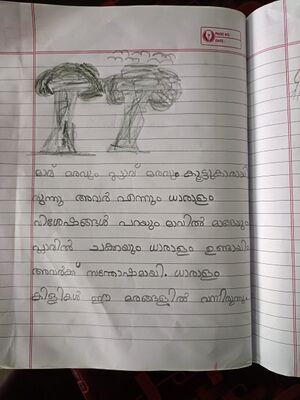 PAGE NO.
DATE:
മാവ് മരവും പ്ലാവ് മരവും കൂട്ടുകാരായി
രുന്നു അവർ എന്നും ധാരാളം
വിശേഷങ്ങൾ പറയും മാവിൽ മാങ്ങയും
പ്ലാവിൽ ചക്കയും ധാരാളം ഉണ്ടായി
അവർക്ക് സന്തോഷമായി. ധാരാളം
കിളികൾ ഈ മരങ്ങളിൽ വന്നിരുന്നു.